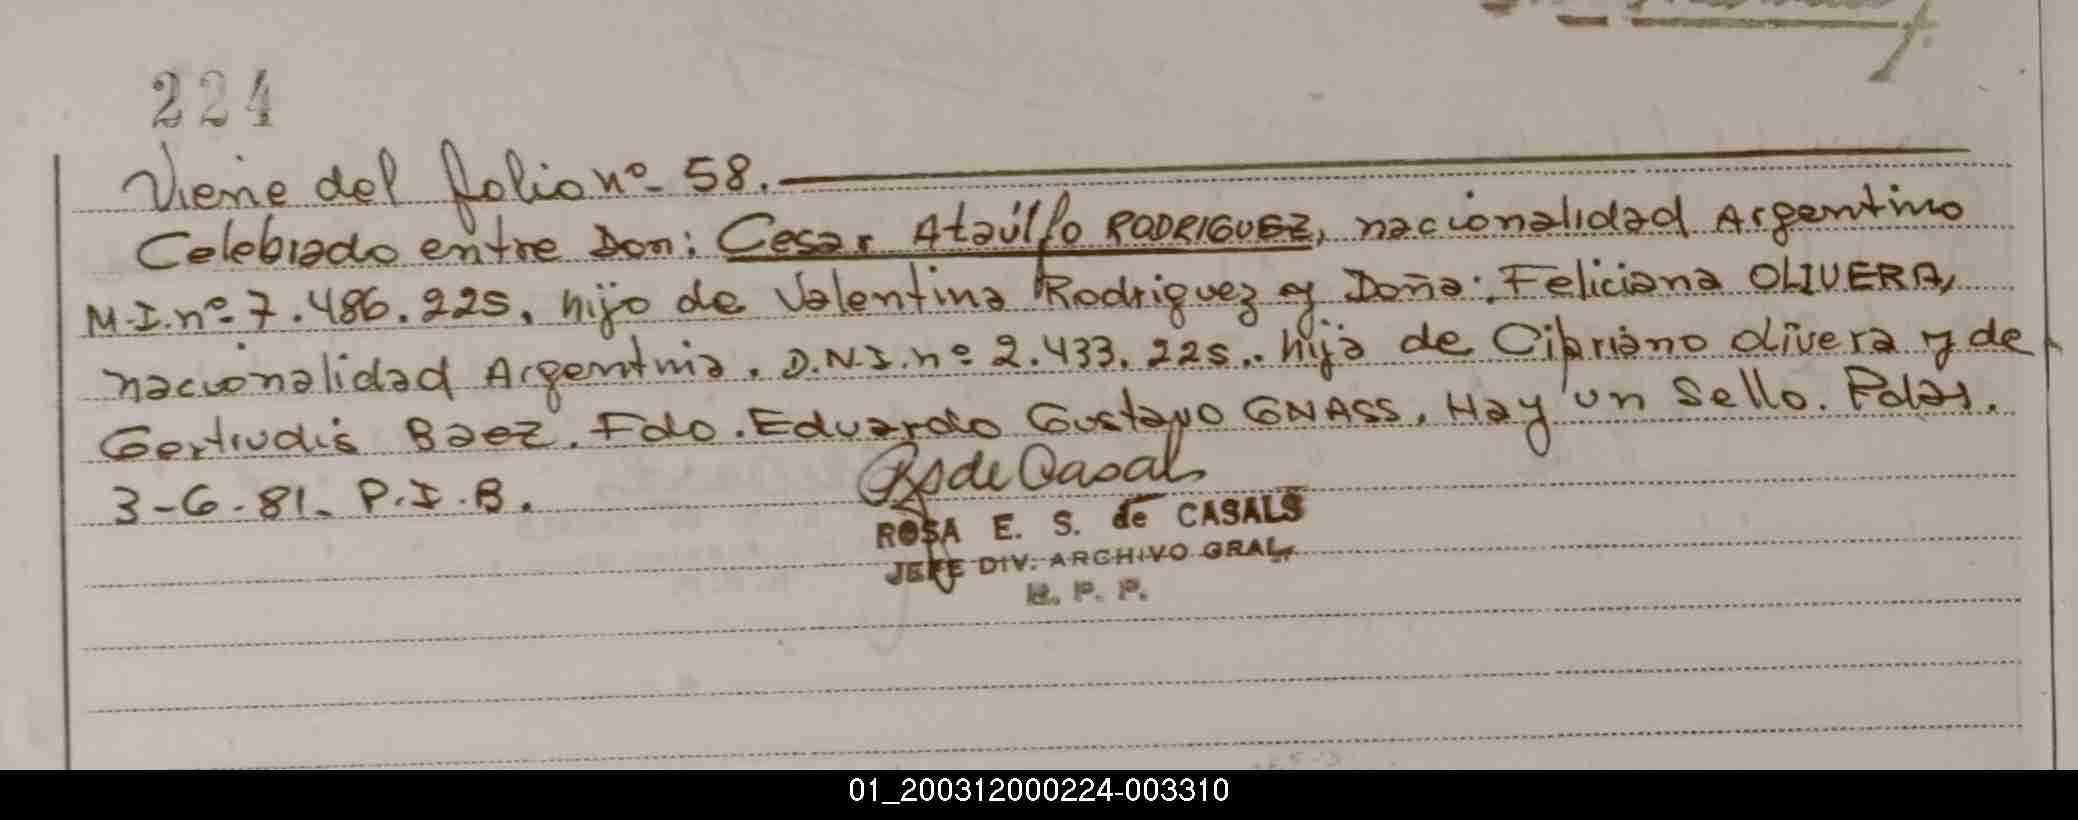 224
Viene del folio nº 58.
Celebrado entre Don: Cesar Ataúlfo RODRIGUEZ, nacionalidad Argentino
M.I. nº 7.486.225, hijo de Valentina Rodriguez y Doña: Feliciana OLIVERA,
nacionalidad Argentina. D.N.I. nº 2.433.225.. hija de Cipriano Olivera y de
Gertrudis Baez. Fdo. Eduardo Gustavo GNASS, Hay un Sello. Pdas.
3-6-81. P.I.B.
de Casals
ROSA E. S. de CASALS
JEFE DIV. ARCHIVO GRAL.
R. P. P.
01_200312000224-003310